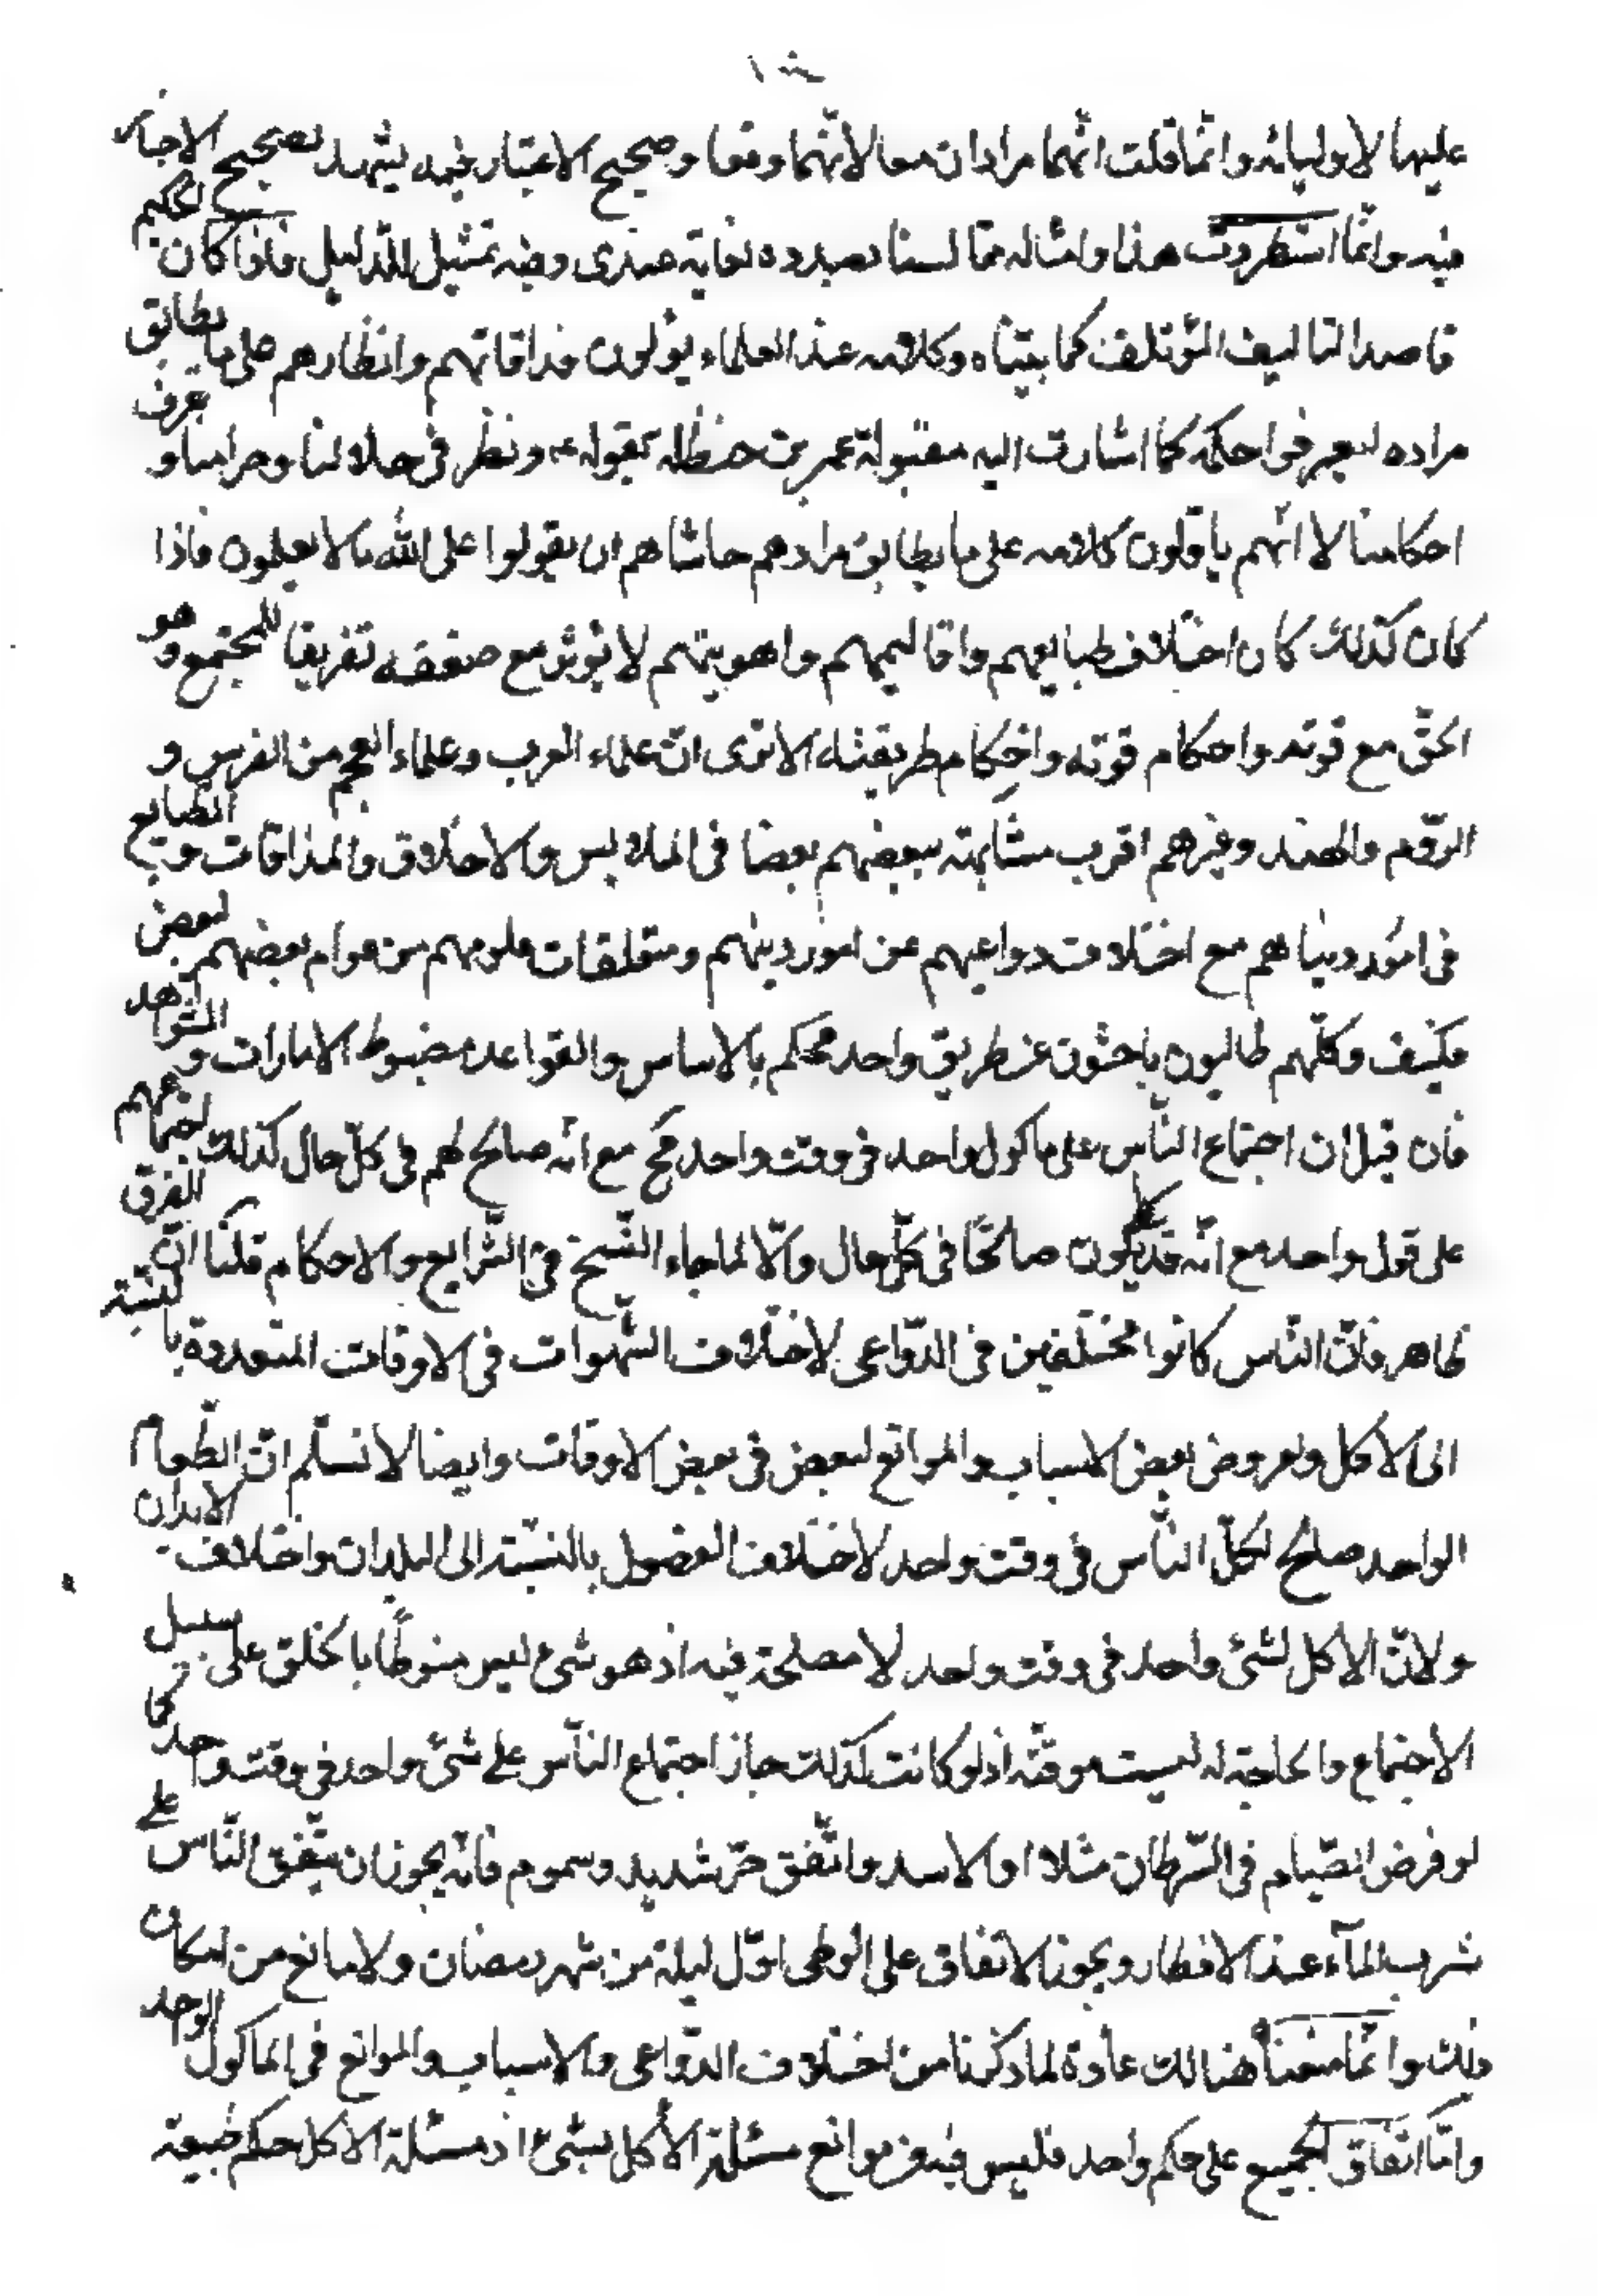 عليها لاوليائه وانّما قلت انّهما مرادان معا لانّهما وقعا وصحيح الاعتبار فيه يشهد لصحيح الاخبار
فيه وانّما استطردت هذا وامثاله ممّا لسنا بصدده لغاية عندى وفيه تمثيل للدليل فاذا كان الحكيم
قاصدا لتاليف المؤتلف كما بيّناه وكلامه عند العلماء يؤلون مذاقاتهم وانظارهم على ما يطابق
مراده ليعرفوا حكمه كما اشارت اليه مقبولة عمر بن حنظله بقوله ونظر فى حلالنا وحرامنا وعرف
احكامنا لا انّهم ياوّلون كلامه على ما يطابق مرادهم حاشاهم ان يقولوا على الله ما لا يعلمون فاذا
كان كذلك كان اختلاف طبايعهم واقاليمهم واهويتهم لا يؤثر مع ضعفه تفريقا للمجتمع وهو
الحقّ مع قوته واحكام قوته واحكام طريقته الا ترى انّ علماء العرب وعلماء العجم من الفرس و
الرّوم والهند وغيرهم اقرب مشابهته ببعضهم بعضا فى الملابس والاخلاق والمذاقات والطبايع
فى امور دنياهم مع اختلاف دواعيهم عن امور دينهم ومتعلقات علومهم من عوام بعضهم لبعض
فكيف وكلّهم طالبون باحثون عن طريق واحد محكم بالاساس والقواعد مضبوط الامارات والشواهد
فان قيل ان اجتماع النّاس على ماكول واحد فى وقت واحد مح مع انّه صالح لهم فى كلّ حال كذلك اجتماعهم
على قول واحد مع انّه قد يكون صالحًا فى كلّ حال والّا لما جاء النّسخ فى الشّرايع والاحكام قلنا انّ الفرق
ظاهر فانّ النّاس كانوا مختلفين فى الدّواعى لاختلاف الشّهوات فى الاوقات المتعددة بالنسبة
الى الاكل ولعروض بعض الاسباب والموانع لبعض فى بعض الاوقات وايضا لا نسلّم انّ الطّعام
الواحد صلح لكلّ النّاس فى وقت واحد لاختلاف الفصول بالنسبة الى البلدان واختلاف الابدان
ولانّ الاكل لشئ واحد فى وقت واحد لا مصلحة فيه اذ هو شئ ليس منوطًا بالخلق على سبيل
الاجتماع والحاجة له ليست موقتّه اذ لو كانت كذلك جاز اجتماع النّاس على شئ واحد فى وقت واحد
لو فرض الصّيام فى السّرطان مثلا او الاسد واتّفق حرّ شديد وسموم فانّه يجوز ان يتّفق النّاس على
شرب المآء عند الافطار ويجوز الاتفاق على الوطى اوّل ليلة من شهر رمضان ولا مانع من امكان
ذلك وانّما منعنا هنالك عادة لما ذكرنا من اختلاف الدّواعى والاسباب والموانع فى الماكول الواحد
وامّا اتفاق الجميع على حكم واحد فليس فيه من موانع مسئلة الاكل بشئ اذ مسئلة الاكل حكم طبيعة